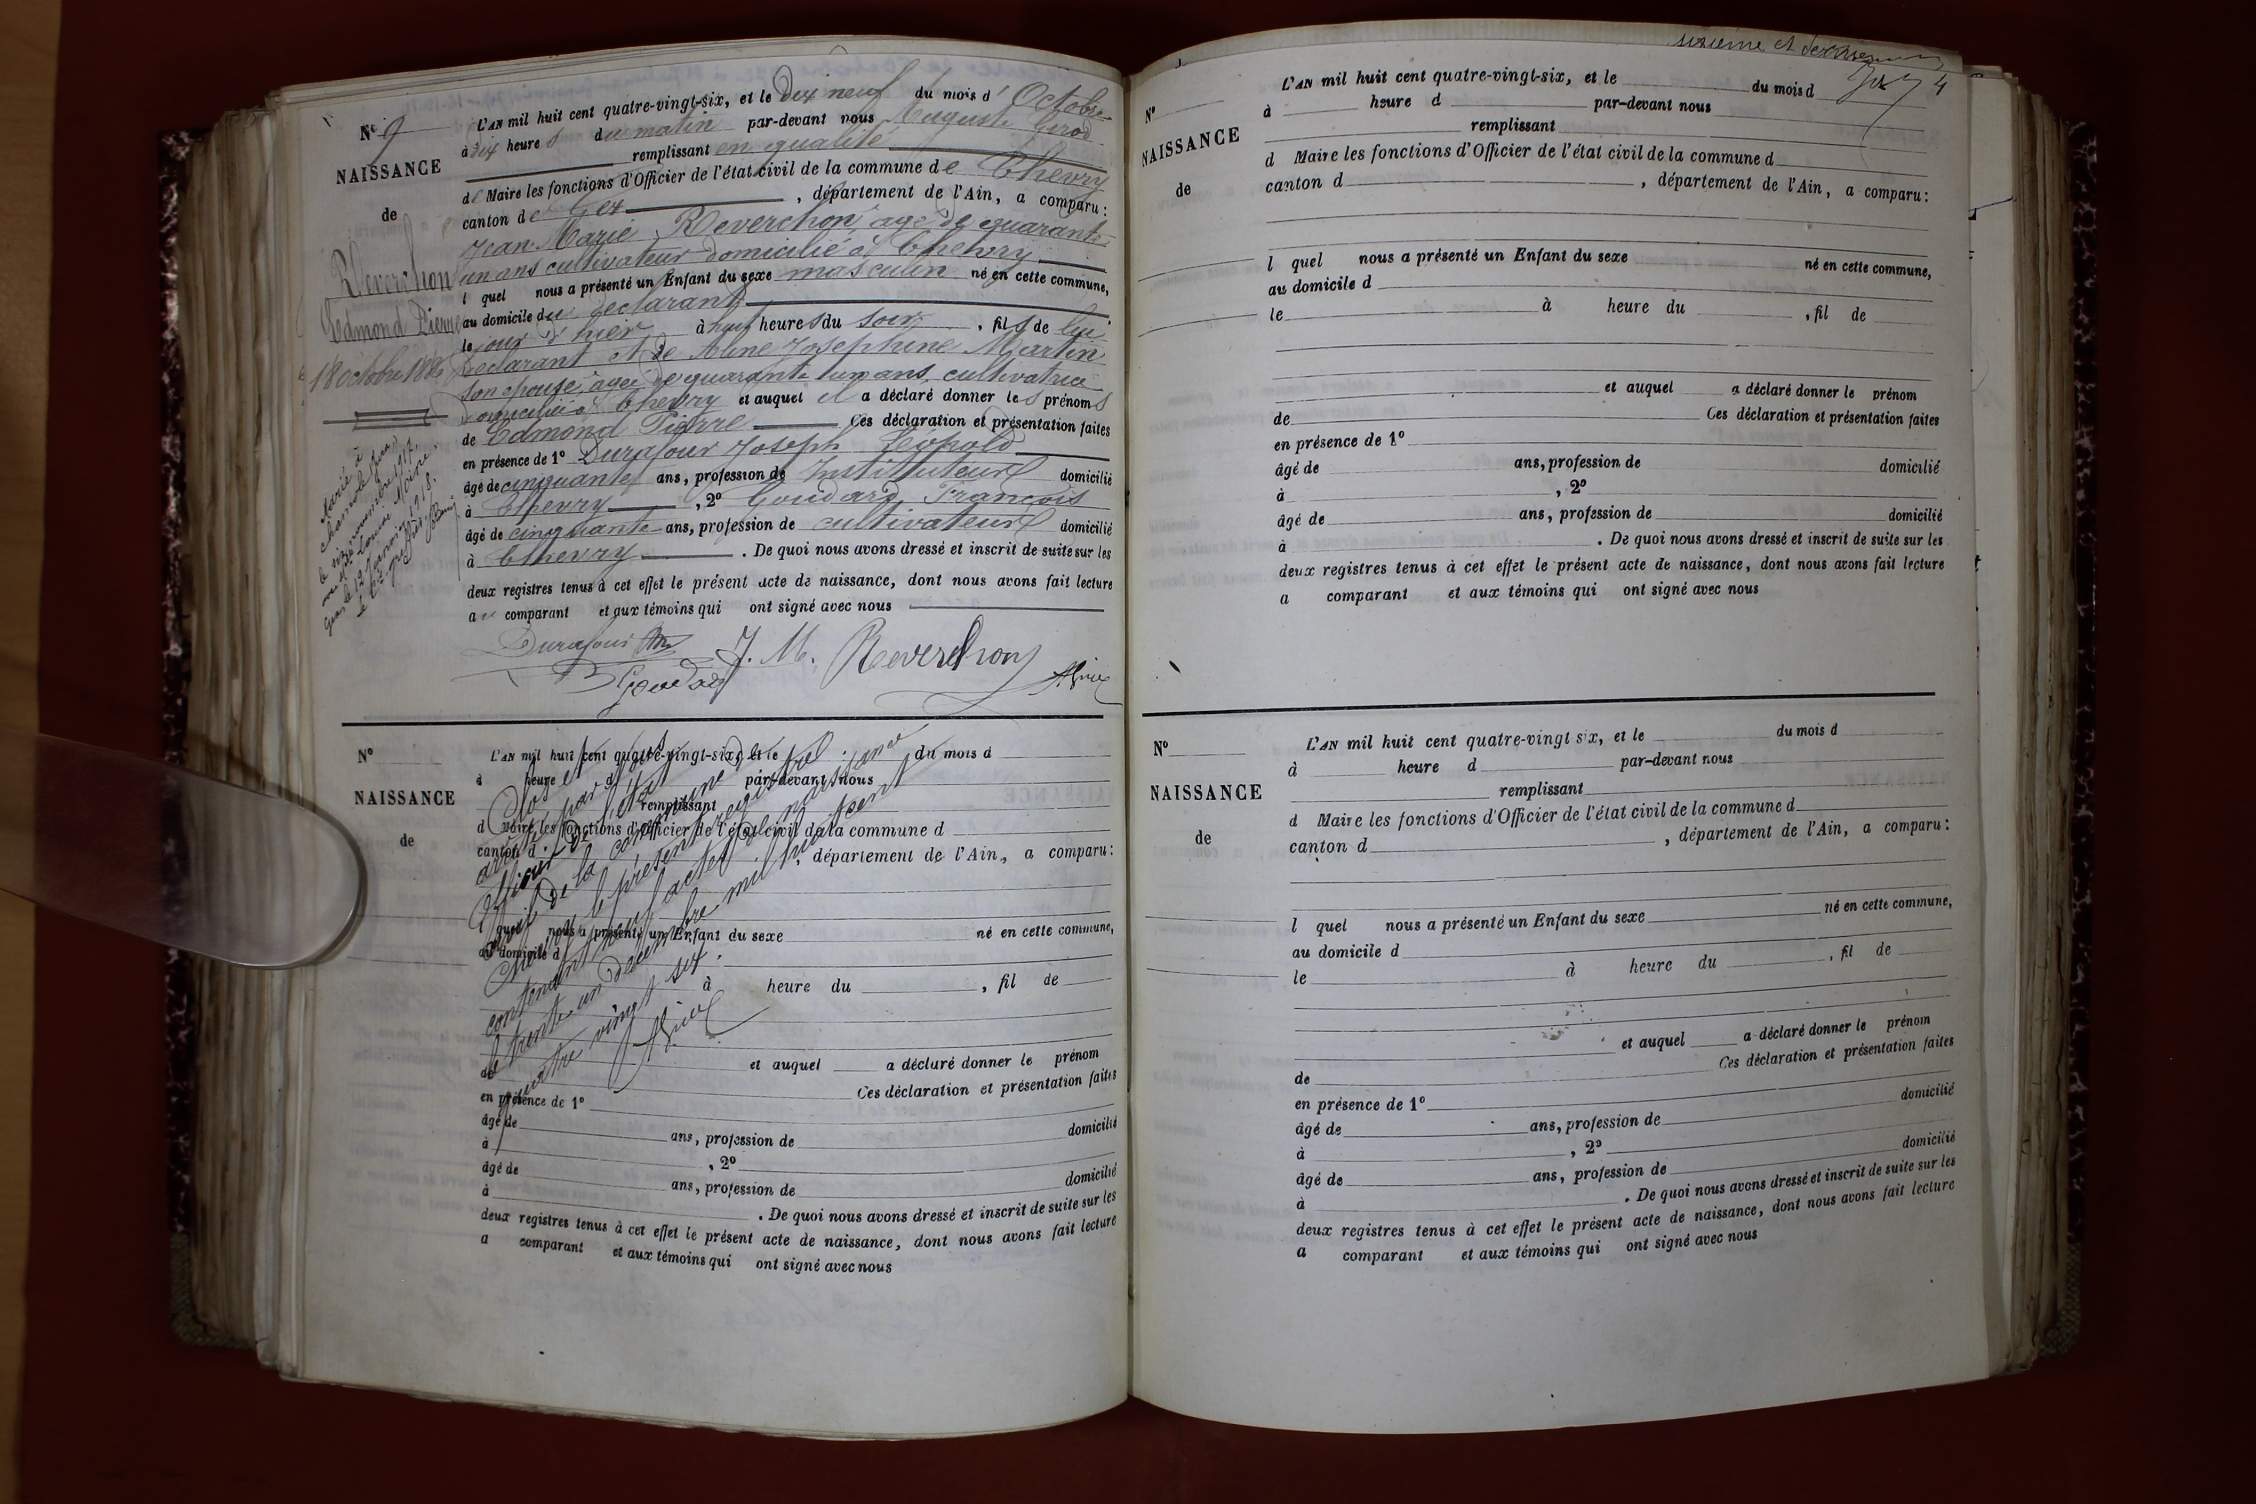 N° 9
NAISSANCE
de
Reverchon
Edmond Pierre
18 octobre 1886
Marié à
le
L'AN mil huit cent quatre-vingt-six, et le dix neuf du mois d'Octobre
à dix heures du matin par-devant nous Auguste Girod
remplissant en qualité
de Maire les fonctions d'Officier de l'état civil de la commune de Chevry
canton de Gex, département de l'Ain, a comparu:
Jean Marie Reverchon, agé de quarante
un ans cultivateur domicilié à Chevry
l quel nous a présenté un Enfant du sexe masculin né en cette commune,
au domicile du déclarant
le jour d'hier à huit heures du soir, fils de lui
déclarant et de Aline Josephine Martin
son épouse, agée de quarante un ans, cultivatrice
domiciliée à Chevry et auquel il a déclaré donner les prénoms
de Edmond Pierre Ces déclaration et présentation faites
en présence de 1° Durafour Joseph Léopold
âgé de cinquante ans, profession de Instituteur domicilié
à Chevry, 2° Goudard François
âgé de cinquante ans, profession de cultivateur domicilié
à Chevry. De quoi nous avons dressé et inscrit de suite sur les
deux registres tenus à cet effet le présent acte de naissance, dont nous avons fait lecture
au comparant et aux témoins qui ont signé avec nous
Durafour J. M. Reverchon
Goudard
N°
NAISSANCE
de
L'AN mil huit cent quatre-vingt-six, et le du mois d
à heure d par-devant nous
remplissant
d Maire les fonctions d'Officier de l'état civil de la commune d
canton d , département de l'Ain, a comparu:
l quel nous a présenté un Enfant du sexe né en cette commune,
au domicile d
à heure du , fil de
et auquel a déclaré donner le prénom
de Ces déclaration et présentation faites
en présence de 1°
âgé de ans, profession de domicilié
à , 2°
âgé de ans, profession de domicilié
à . De quoi nous avons dressé et inscrit de suite sur les
deux registres tenus à cet effet le présent acte de naissance, dont nous avons fait lecture
a comparant et aux témoins qui ont signé avec nous
Clos et
arrêté par Nous
Officier de l'état
civil de la commune de
Chevry le présent registre
contenant neuf actes de naissance
le trente un décembre mil huit cent
quatre vingt six.
sixième et dernier
4
N°
NAISSANCE
de
L'AN mil huit cent quatre-vingt-six, et le du mois d
à heure d par-devant nous
remplissant
d Maire les fonctions d'Officier de l'état civil de la commune d
canton d , département de l'Ain, a comparu:
l quel nous a présenté un Enfant du sexe né en cette commune,
au domicile d
le à heure du , fil de
et auquel a déclaré donner le prénom
de Ces déclaration et présentation faites
en présence de 1°
âgé de ans, profession de domicilié
à , 2°
âgé de ans, profession de domicilié
à . De quoi nous avons dressé et inscrit de suite sur les
deux registres tenus à cet effet le présent acte de naissance, dont nous avons fait lecture
a comparant et aux témoins qui ont signé avec nous
N°
NAISSANCE
de
L'AN mil huit cent quatre-vingt six, et le du mois d
à heure d par-devant nous
remplissant
d Maire les fonctions d'Officier de l'état civil de la commune d
canton d , département de l'Ain, a comparu:
l quel nous a présenté un Enfant du sexe né en cette commune,
au domicile d
le à heure du , fil de
et auquel a déclaré donner le prénom
de Ces déclaration et présentation faites
en présence de 1°
âgé de ans, profession de domicilié
à , 2°
âgé de ans, profession de domicilié
à . De quoi nous avons dressé et inscrit de suite sur les
deux registres tenus à cet effet le présent acte de naissance, dont nous avons fait lecture
a comparant et aux témoins qui ont signé avec nous